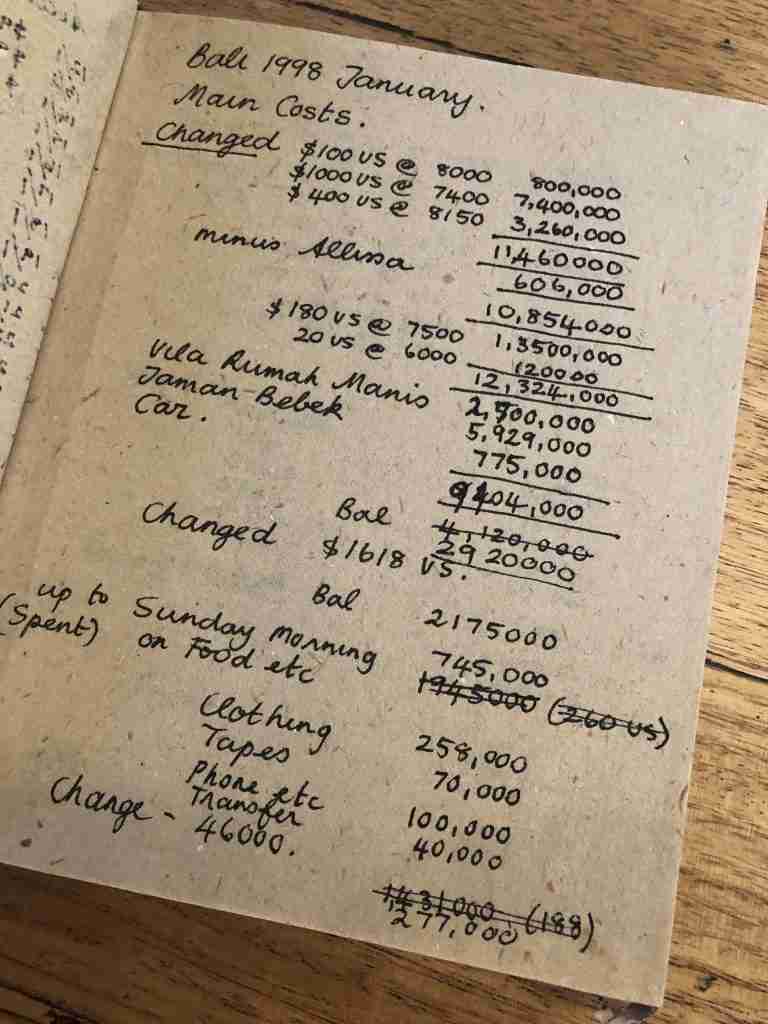 Bali 1998 January.
Main Costs.
Changed $100 US @ 8000 800,000
$1000 US @ 7400 7,400,000
$400 US @ 8150 3,260,000
11,460000
minus Allissa 606,000
10,854000
$180 US @ 7500 1,3500,000
20 US @ 6000 120000
12,324,000
Vila Rumah Manis 2,700,000
Jaman-Bebek 5,929,000
Car. 775,000
9404,000
Bal 4,120,000
2920000
Changed $1618 US.
Bal 2175000
up to Sunday morning 745,000
(Spent) on Food etc 1945000 (260 US)
Clothing 258,000
Tapes 70,000
Phone etc 100,000
Transfer 40,000
Change - 46000.
1431000 (188)
277,000